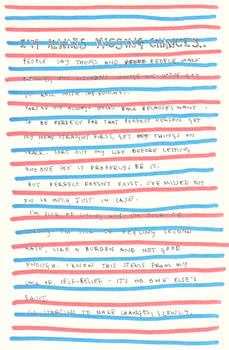 I'M ALWAYS MISSING CHANCES.
PEOPLE SAY THINGS AND PEOPLE MAKE
TO ROLL WITH THE PUNCHES.
ALWAYS BEING BACK BECAUSE I WANT
TO BE PERFECT FOR THAT PERFECT PERSON. GET
MY HEAD STRAIGHT FIRST, GET MY THINGS ON
TRACK. SORT OUT MY LIFE BEFORE LETTING
ANYONE SEE IT PROPERLY, BE IT.
BUT PERFECT DOESN'T EXIST. I'VE MISSED OUT
ON SO MUCH JUST IN CASE.
I'M SICK OF AND I'M SICK OF
I'M SICK OF FEELING SECOND
RATE, LIKE A BURDEN AND NOT GOOD
ENOUGH. I KNOW THIS STEMS FROM MY
LACK OF SELF-BELIEF - IT'S NO ONE ELSE'S
FAULT.
SO STARTING TO MAKE CHANGES, SLOWLY.